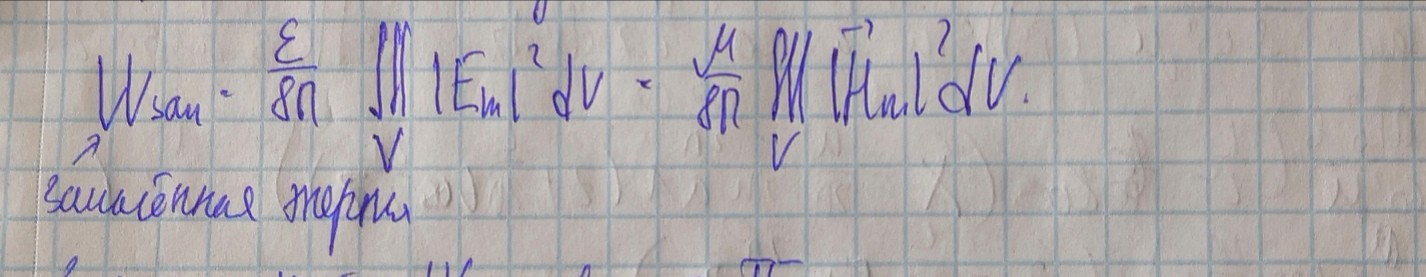 Wзап = ε/8π ∭_V |E_m|² dV = μ/8π ∭_V |H⃗_m|² dV.
запасённая энергия